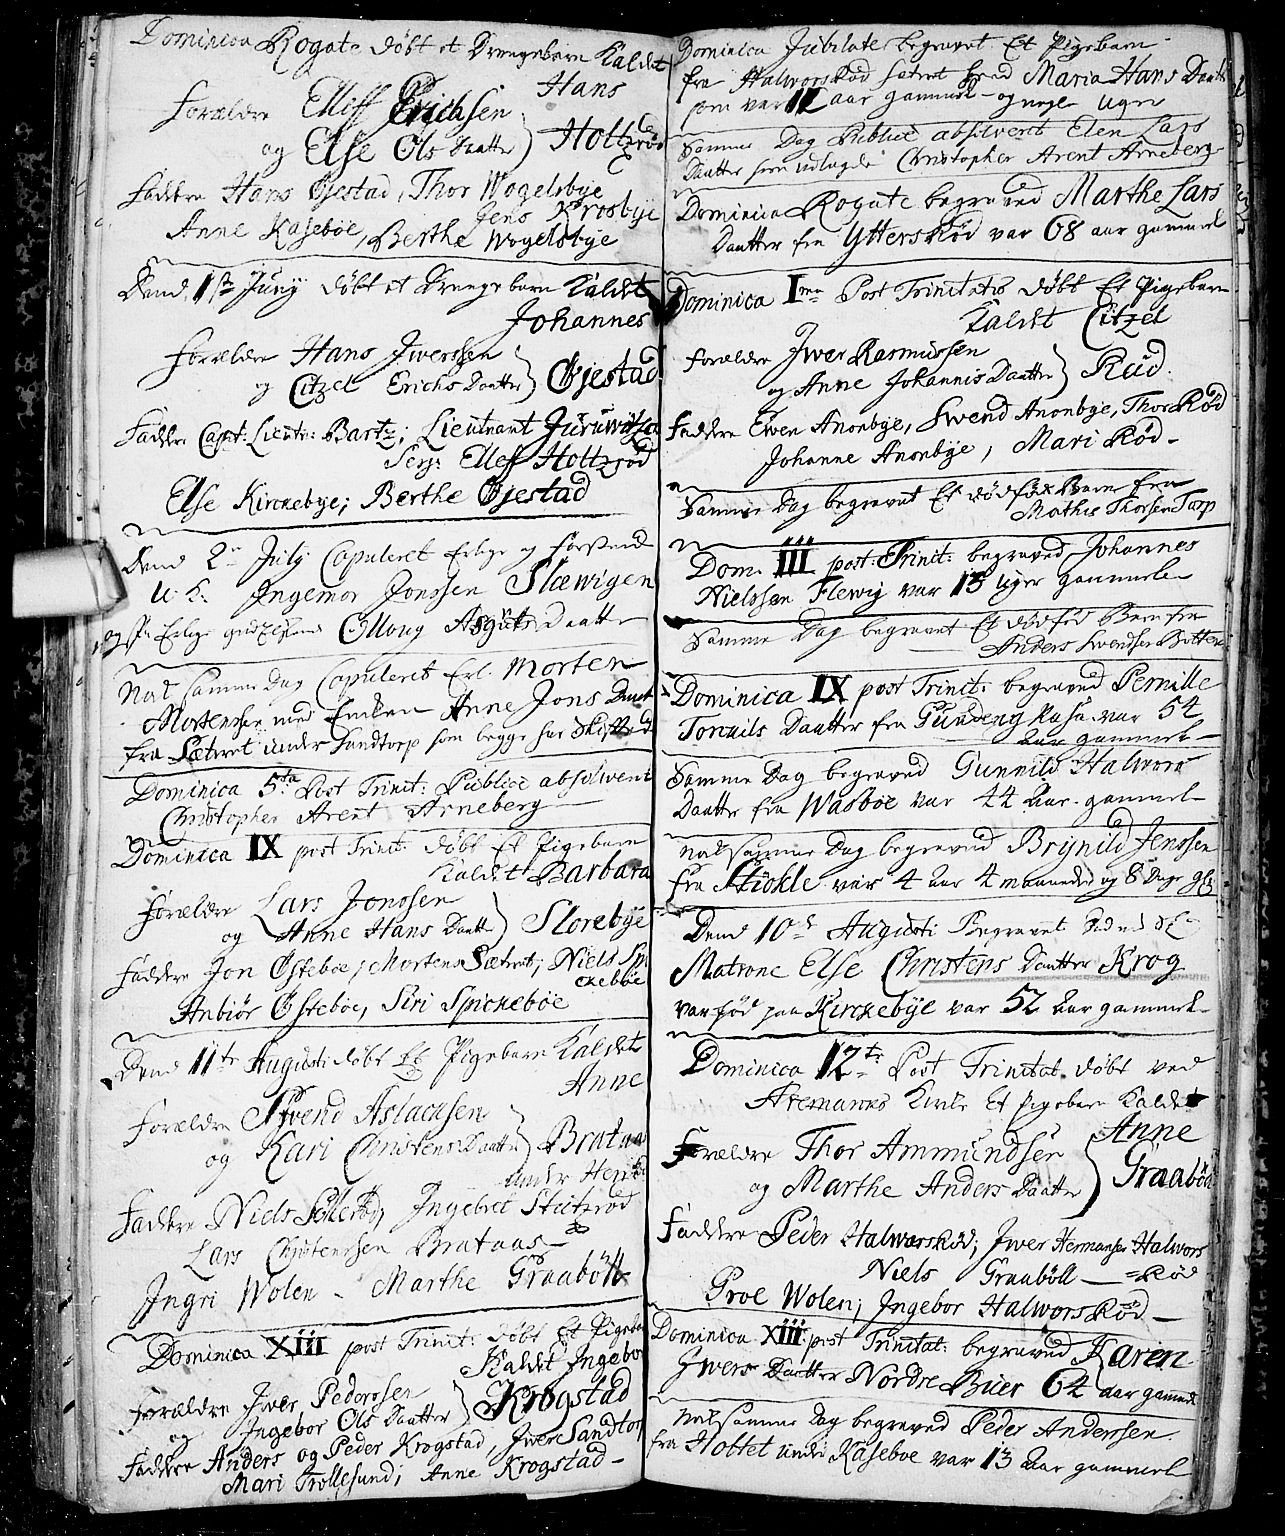 Dominica Rogate döbt et Drengebarn Kaldet
Hans
Forældre Elleff Erichsen
og Else Ols Daatter) Holtzrød
Faddere Hans Gjestad, Thor Wogelsbye
Jens Krosbye
Anne Kasebøe, Berthe Wogelsbye
Dend 1ste Junij döbt et Drengebarn Kaldet
Johannes
Forældre Hans Iwerssen
og Citzel Erichs Daatter) Gjestad
Faddere Capt: Lieutn: Bartz; Lieutnant
Serg: Elleff Holtzrød
Else Kirckebye; Berthe Gjestad
Dend 2den July Copuleret Erlige og
U: K: Ingemor Jonssen Slæwigen
og Erlige gudelskende Olloug Asguts Daatter
Nok samme Dag Copuleret Erl. Morten
Mortenssen med Encken Anne Jons Daatter
fra Sæteret under Sandtorp som begge har
Dominica 5ta Post Trinit: Publice absolveret
Christopher Arent Arneberg
Dominica IX post Trinit: döbt Et Pigebarn
Kaldet Barbara
Forældre Lars Jonssen
og Anne Hans Daatter) Slorebye
Faddere Jon Østebøe; Morten Sæteret; Niels Spi
ckebøe
Anbiør Østebøe, Siri Spickebøe
Dend 11te Augusti döbt Et Pigebarn Kaldet
Anne
Forældre Swend Aslachsen
og Kari Christens Daatter) Brataas
under
Faddere Niels Sollerød, Ingebret Stutzrød
Lars Christenssen Brataas
Ingri Wolen - Marthe Graabøll
Dominica XIII post Trinit: döbt Et Pigebarn
Kaldet Ingebor
Forældre Iwer Pederssen
og Ingebor Ols Daatter) Krogstad
Faddere Anders og Peder Krogstad, Iwer Sandtorp
Mari Trollesund; Anne Krogstad
Dominica Jubilate begravet Et Pigebarn
fra Halworsrød Maria Hans Daatter
som var 12 aar gammel og nogle uger
Samme Dag Publice absolveret Elen Lars
Daatter som udlagde Christopher Arent Arneberg
Dominica Rogate begraved Marthe Lars
Daatter fra Ytterskød var 68 aar gammel
Dominica Ima Post Trinitatis döbt Et Pigebarn
Kaldet Citzel
Forældre Iwer Rasmussen
og Anne Johannis Daatter) Rud.
Faddere Ewen Anonbye, Swend Anonbye, Thor Rød
Johanne Anonbye, Mari Rød
Samme Dag begravet Et dødfød Barn fra
Mathis Thorsen Tarp
Dom: III post: Trinit: begraved Johannes
Nielssen Flewig var 13 uger gammel
Samme Dag begravet Et dødfød Barn fra
Anders Swendsen Botten
Dominica IX post Trinit: begraved Pernille
Tormils Daatter fra Gundeng var 54
Aar gammel
Samme Dag begraved Gunnild Halwors
Daatter fra Wasbøe var 44 Aar gammel
Nok samme Dag begraved Brynild Jenssen
fra Støkle var 4 Aar 4 maaneder og 8 Dage gl:
Dend 10de Augusti Begravet
Matrone Else Christens Daatter Krog
var fød paa Kirckebye var 52 Aar gammel
Dominica 12te Post Trinitat. döbt ved
Aremarks Kirke Et Pigebarn Kaldet
Anne
Forældre Thor Ammundsen
og Marthe Anders Daatter) Graabøl
Faddere Peder Halworsrød; Iwer Hermansen Halwors
Niels Graabøll = Rød
Groe Wolen; Ingebor Halworsrød
Dominica XIII post Trinitat: begraved Karen
Iwers Daatter Nordre Buer 64 aar gammel
Nok samme Dag begraved Peder Anderssen
fra Holtet under Kasebøe var 13 Aar gammel